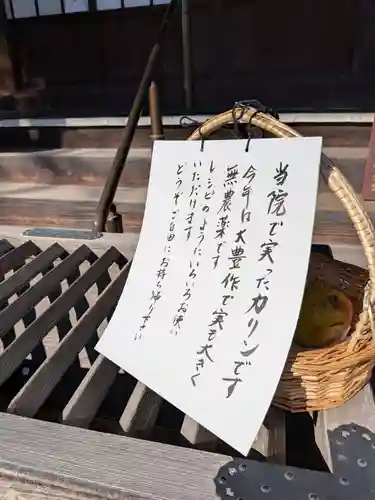 当院で実ったカリンです
今年は大豊作で実も大きく
無農薬です
レシピのようにいろいろお使い
いただけます
どうぞご自由にお持ち帰り下さい